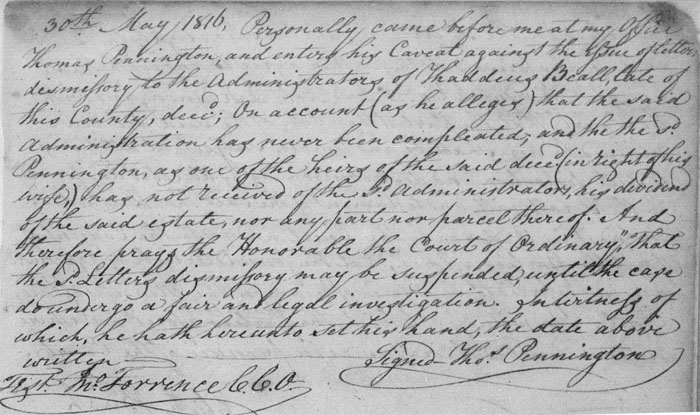 30th May 1816, Personally came before me at my Office
Thomas Pennington, and enters his Caveat against the issue of letters
dismissory to the Administrators of Thaddeus Beall, late of
this County, decd; On account (as he alleges) that the said
Administration has never been compleated; and the the sd
Pennington, as one of the heirs of the said decd (in right of his
wife,) has not received of the sd Administrators, his dividend
of the said estate, nor any part nor parcel thereof. And
therefore prays the Honorable the Court of Ordinary", That
the sd Letters dismissory may be suspended, until the case
do undergo a fair and legal investigation. In witness of
which, he hath hereunto set his hand, the date above
written
Signed Thos Pennington
Test. Jno Torrence C.C.O.